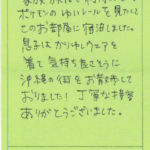 ポケモンのゆいレールを見たくて
このお部屋に宿泊しました。
息子はかりゆしウェアを
着て気持ち良さそうに
沖縄の街をお散歩して
おりました！丁寧な接客
ありがとうございました。